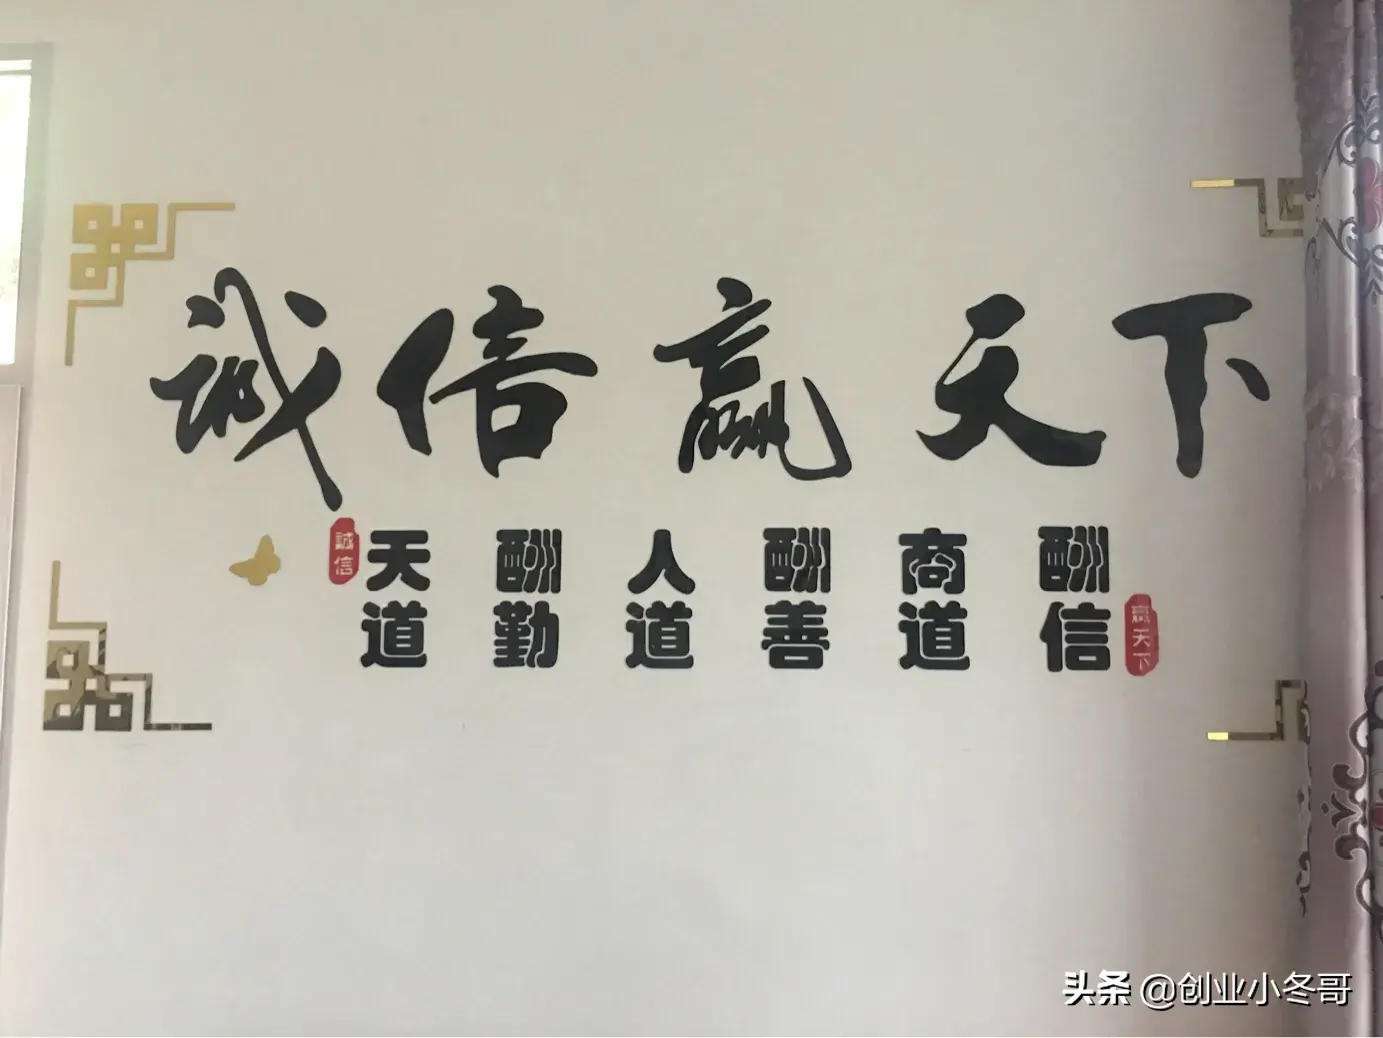 诚信赢天下
誠信
天道 酬勤 人道 酬善 商道 酬信
赢天下
头条 @创业小冬哥